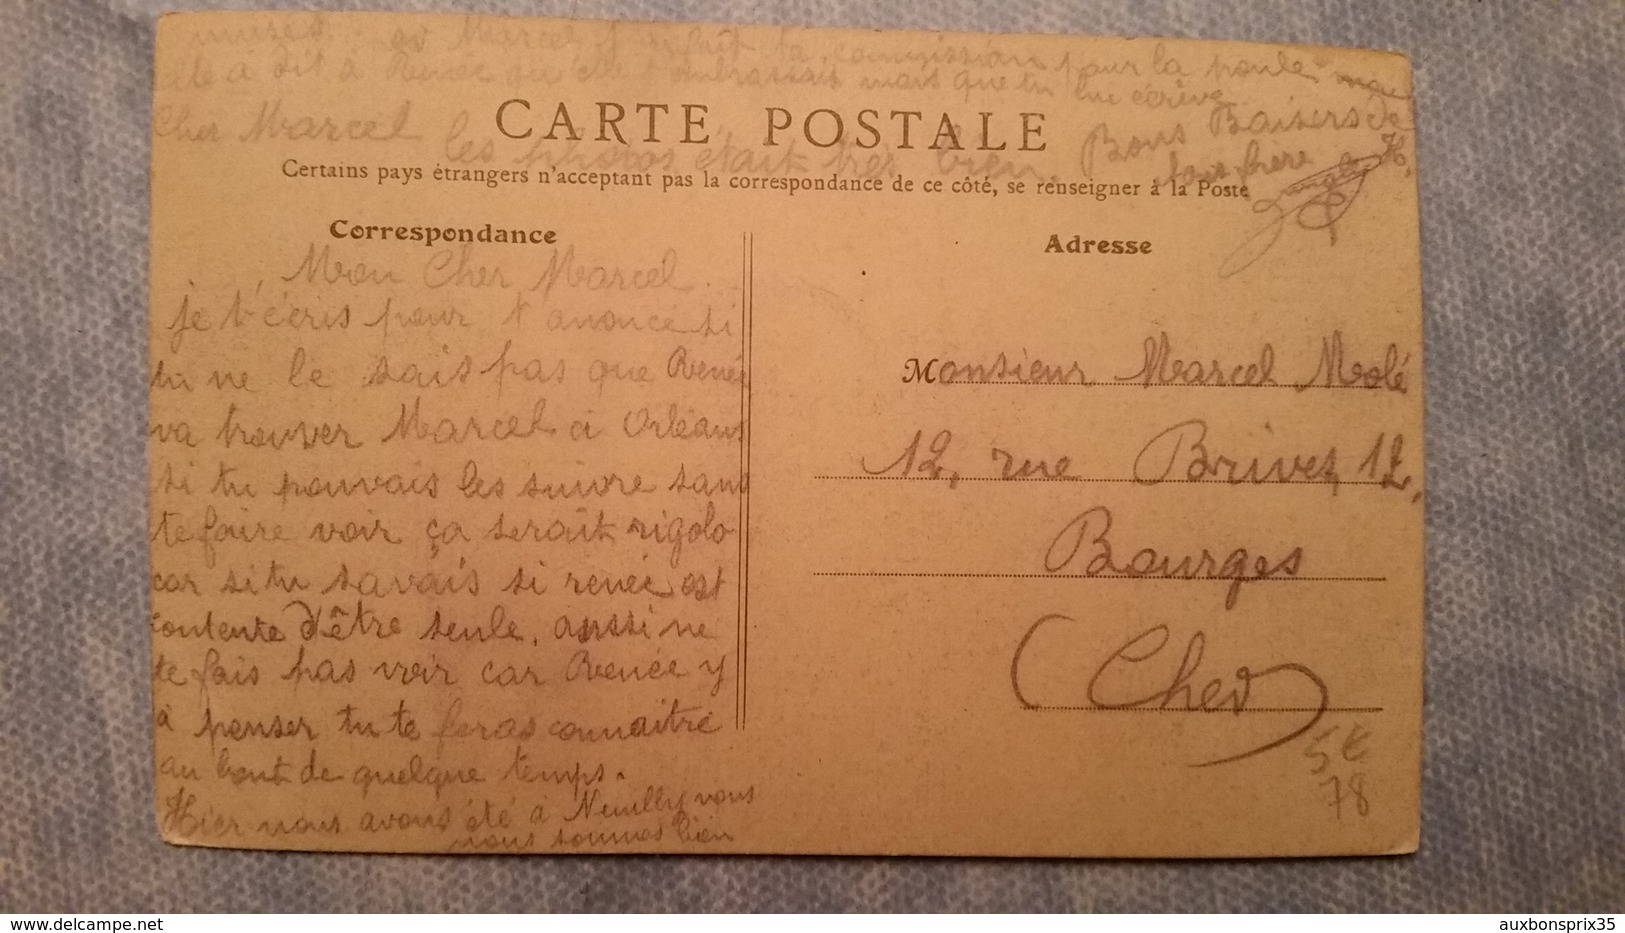 musés. Marcel j'ai fait ta commission pour la poule
elle a dit à Renée qu'elle t'embrassait mais que tu lui écrive
Cher Marcel les photos était très bien. Bons Baisers de
ton frère H.
CARTE POSTALE
Certains pays étrangers n'acceptant pas la correspondance de ce côté, se renseigner à la Poste
Correspondance
Mon Cher Marcel.
je t'écris pour t'anonce si
tu ne le sais pas que Renée
va trouver Marcel à Orléans
si tu pouvais les suivre sans
te faire voir ça serait rigolo
car si tu savais si renée est
contente d'être seule, aussi ne
te fais pas voir car Renée y
à penser tu te feras connaitre
au bout de quelque temps.
Hier nous avons été à Neuilly nous
nous sommes bien
Adresse
Monsieur Marcel Molé
12, rue Brives, 12,
Bourges
(Cher)
5€
78
auxbonsprix35